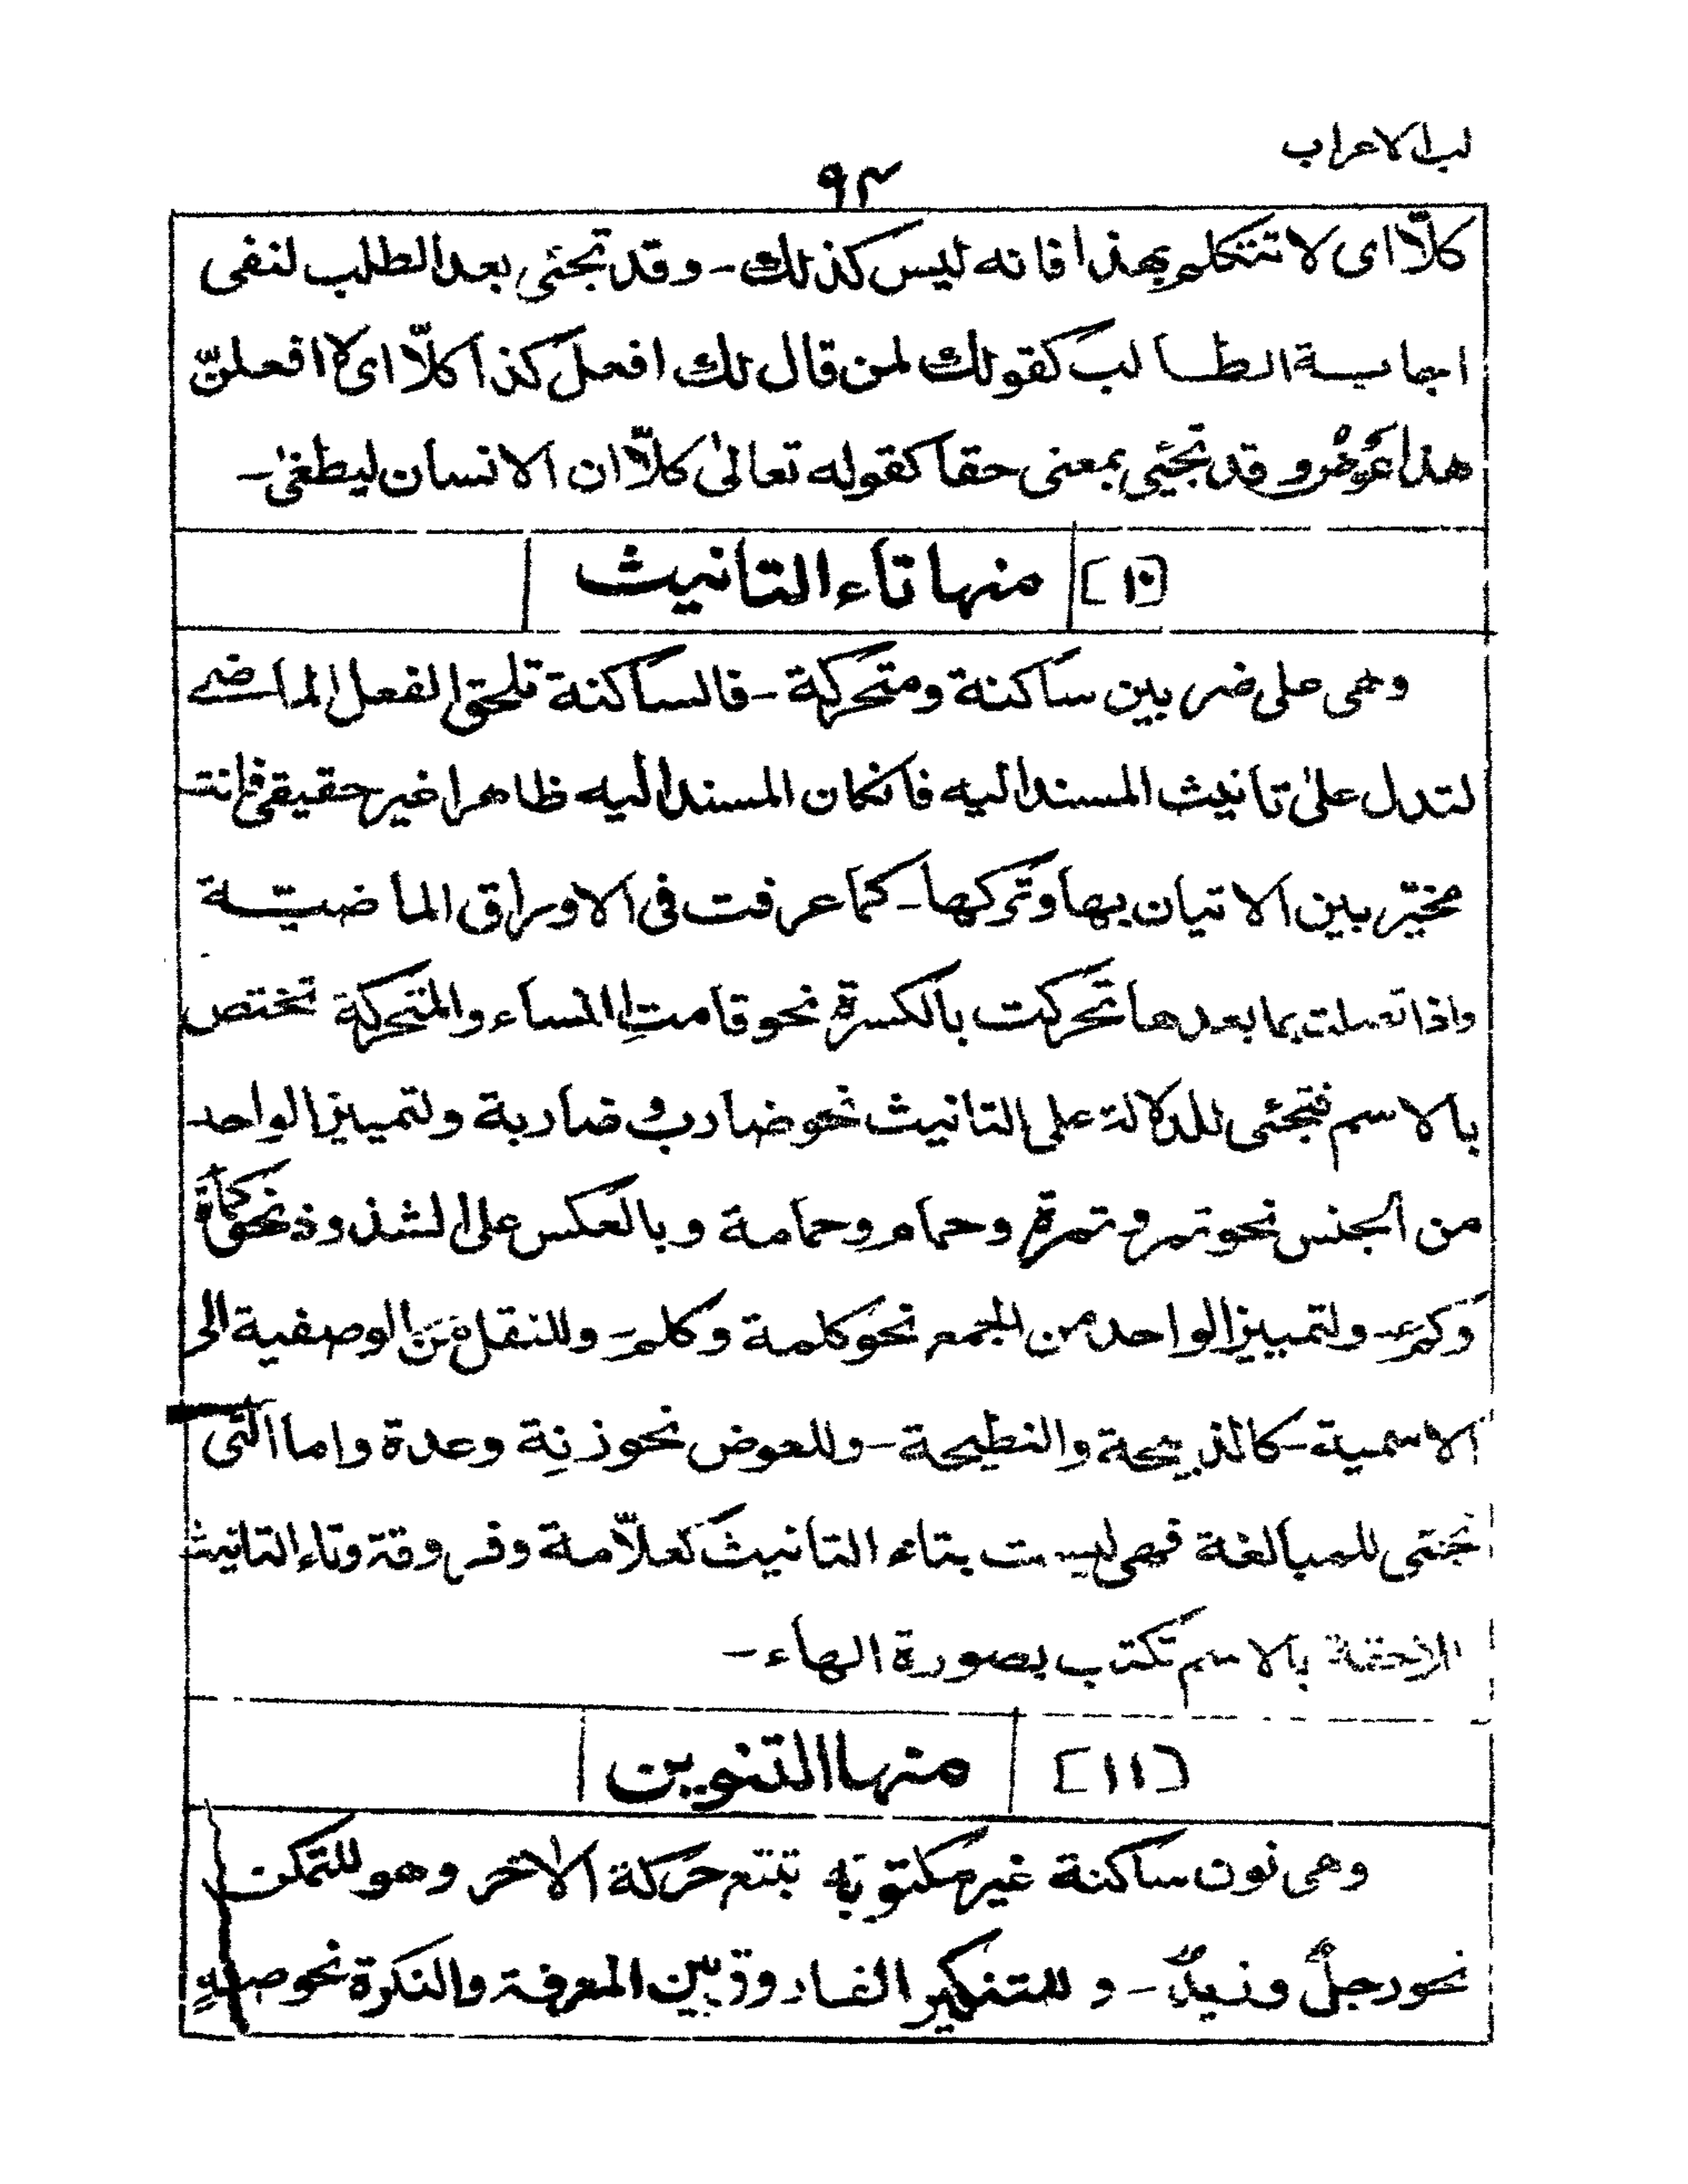 لب الاعراب
٩٤
كلّا اى لا تتكلم بهذا فانه ليس كذلك - وقد تجئى بعد الطلب لنفى
اجابة الطالب كقولك لمن قال لك افعل كذا كلّا اى لا افعلنّ
هذا وقد تجئى بمعنى حقا كقوله تعالىٰ كلّا ان الانسان ليطغىٰ -
[١٠] منها تاء التانيث
وهى على ضربين ساكنة ومتحركة - فالساكنة تلحق الفعل الماضى
لتدل علىٰ تانيث المسند اليه فانكان المسند اليه ظاهرا غير حقيقى فانت
مخيّر بين الاتيان بها وتركها - كما عرفت فى الاوراق الماضيّة
واذا تصلت بما بعدها تحركت بالكسرة نحو قامتِ النساء والمتحركة تختص
بالاسم فتجئى للدلالة على التانيث نحو ضارب وضاربة ولتمييز الواحد
من الجنس نحو تمر وتمرة وحمام وحمامة وبالعكس على الشذوذ نحو كمأة
وكمء - ولتمييز الواحد من الجمع نحو كلمة وكلم - وللنقل من الوصفية الى
الاسمية - كالذبيحة والنطيحة - وللعوض نحو زنة وعدة واما التى
تجئى للمبالغة فهى ليست بتاء التانيث كعلّامة وفروقة وتاء التانيث
اللاحقة بالاسم تكتب بصورة الهاء -
[١١] منها التنوين
وهى نون ساكنة غير مكتوبة تتبع حركة الاخر وهو للتمكن
نحو رجلٌ وزيدٌ - وللتنكير الفاروق بين المعرفة والنكرة نحو صهٍ